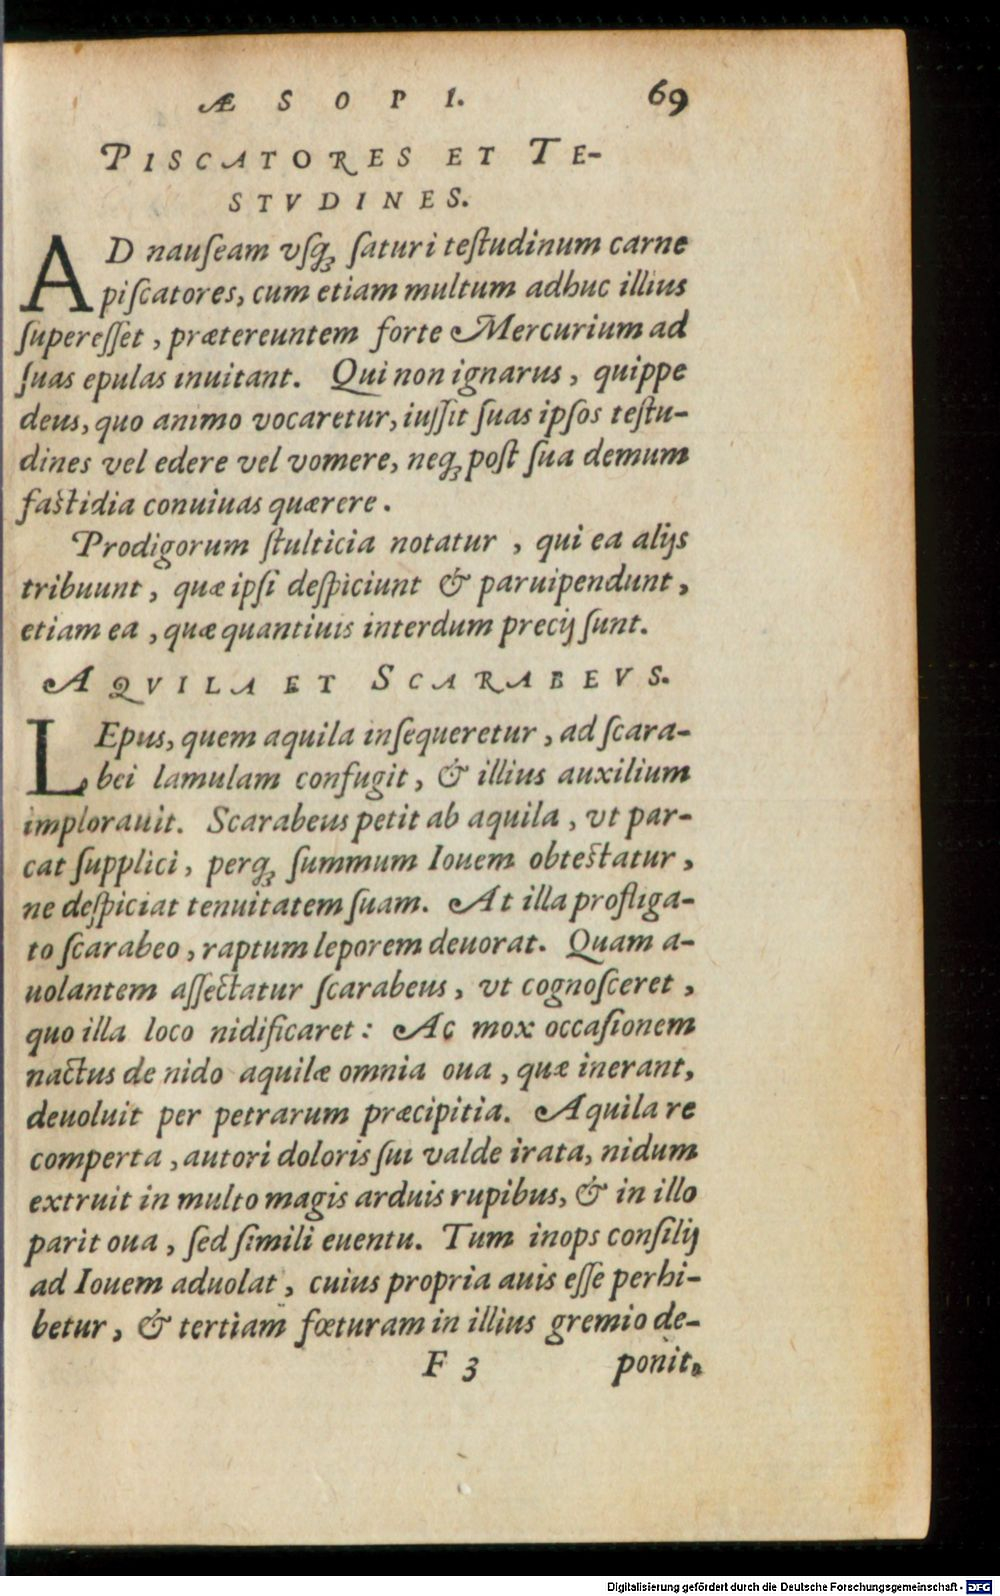 ÆSOPI. 69
PISCATORES ET TE-
STVDINES.
AD nauſeam vſq; ſaturi teſtudinum carne
piſcatores, cum etiam multum adhuc illius
ſupereſſet, prætereuntem forte Mercurium ad
ſuas epulas inuitant. Qui non ignarus, quippe
deus, quo animo vocaretur, iuſſit ſuas ipſos teſtu-
dines vel edere vel vomere, neq; poſt ſua demum
faſtidia conuiuas quærere.
Prodigorum ſtulticia notatur, qui ea alijs
tribuunt, quæ ipſi deſpiciunt & paruipendunt,
etiam ea, quæ quantiuis interdum precij ſunt.
AQVILA ET SCARABEVS.
LEpus, quem aquila inſequeretur, ad ſcara-
bei lamulam confugit, & illius auxilium
implorauit. Scarabeus petit ab aquila, vt par-
cat ſupplici, perq; ſummum Iouem obteſtatur,
ne deſpiciat tenuitatem ſuam. At illa profliga-
to ſcarabeo, raptum leporem deuorat. Quam a-
uolantem aſſectatur ſcarabeus, vt cognoſceret,
quo illa loco nidificaret: Ac mox occaſionem
nactus de nido aquilæ omnia oua, quæ inerant,
deuoluit per petrarum præcipitia. Aquila re
comperta, autori doloris ſui valde irata, nidum
extruit in multo magis arduis rupibus, & in illo
parit oua, ſed ſimili euentu. Tum inops conſilij
ad Iouem aduolat, cuius propria auis eſſe perhi-
betur, & tertiam fœturam in illius gremio de-
F 3 ponit.
Digitalisierung gefördert durch die Deutsche Forschungsgemeinschaft - DFG